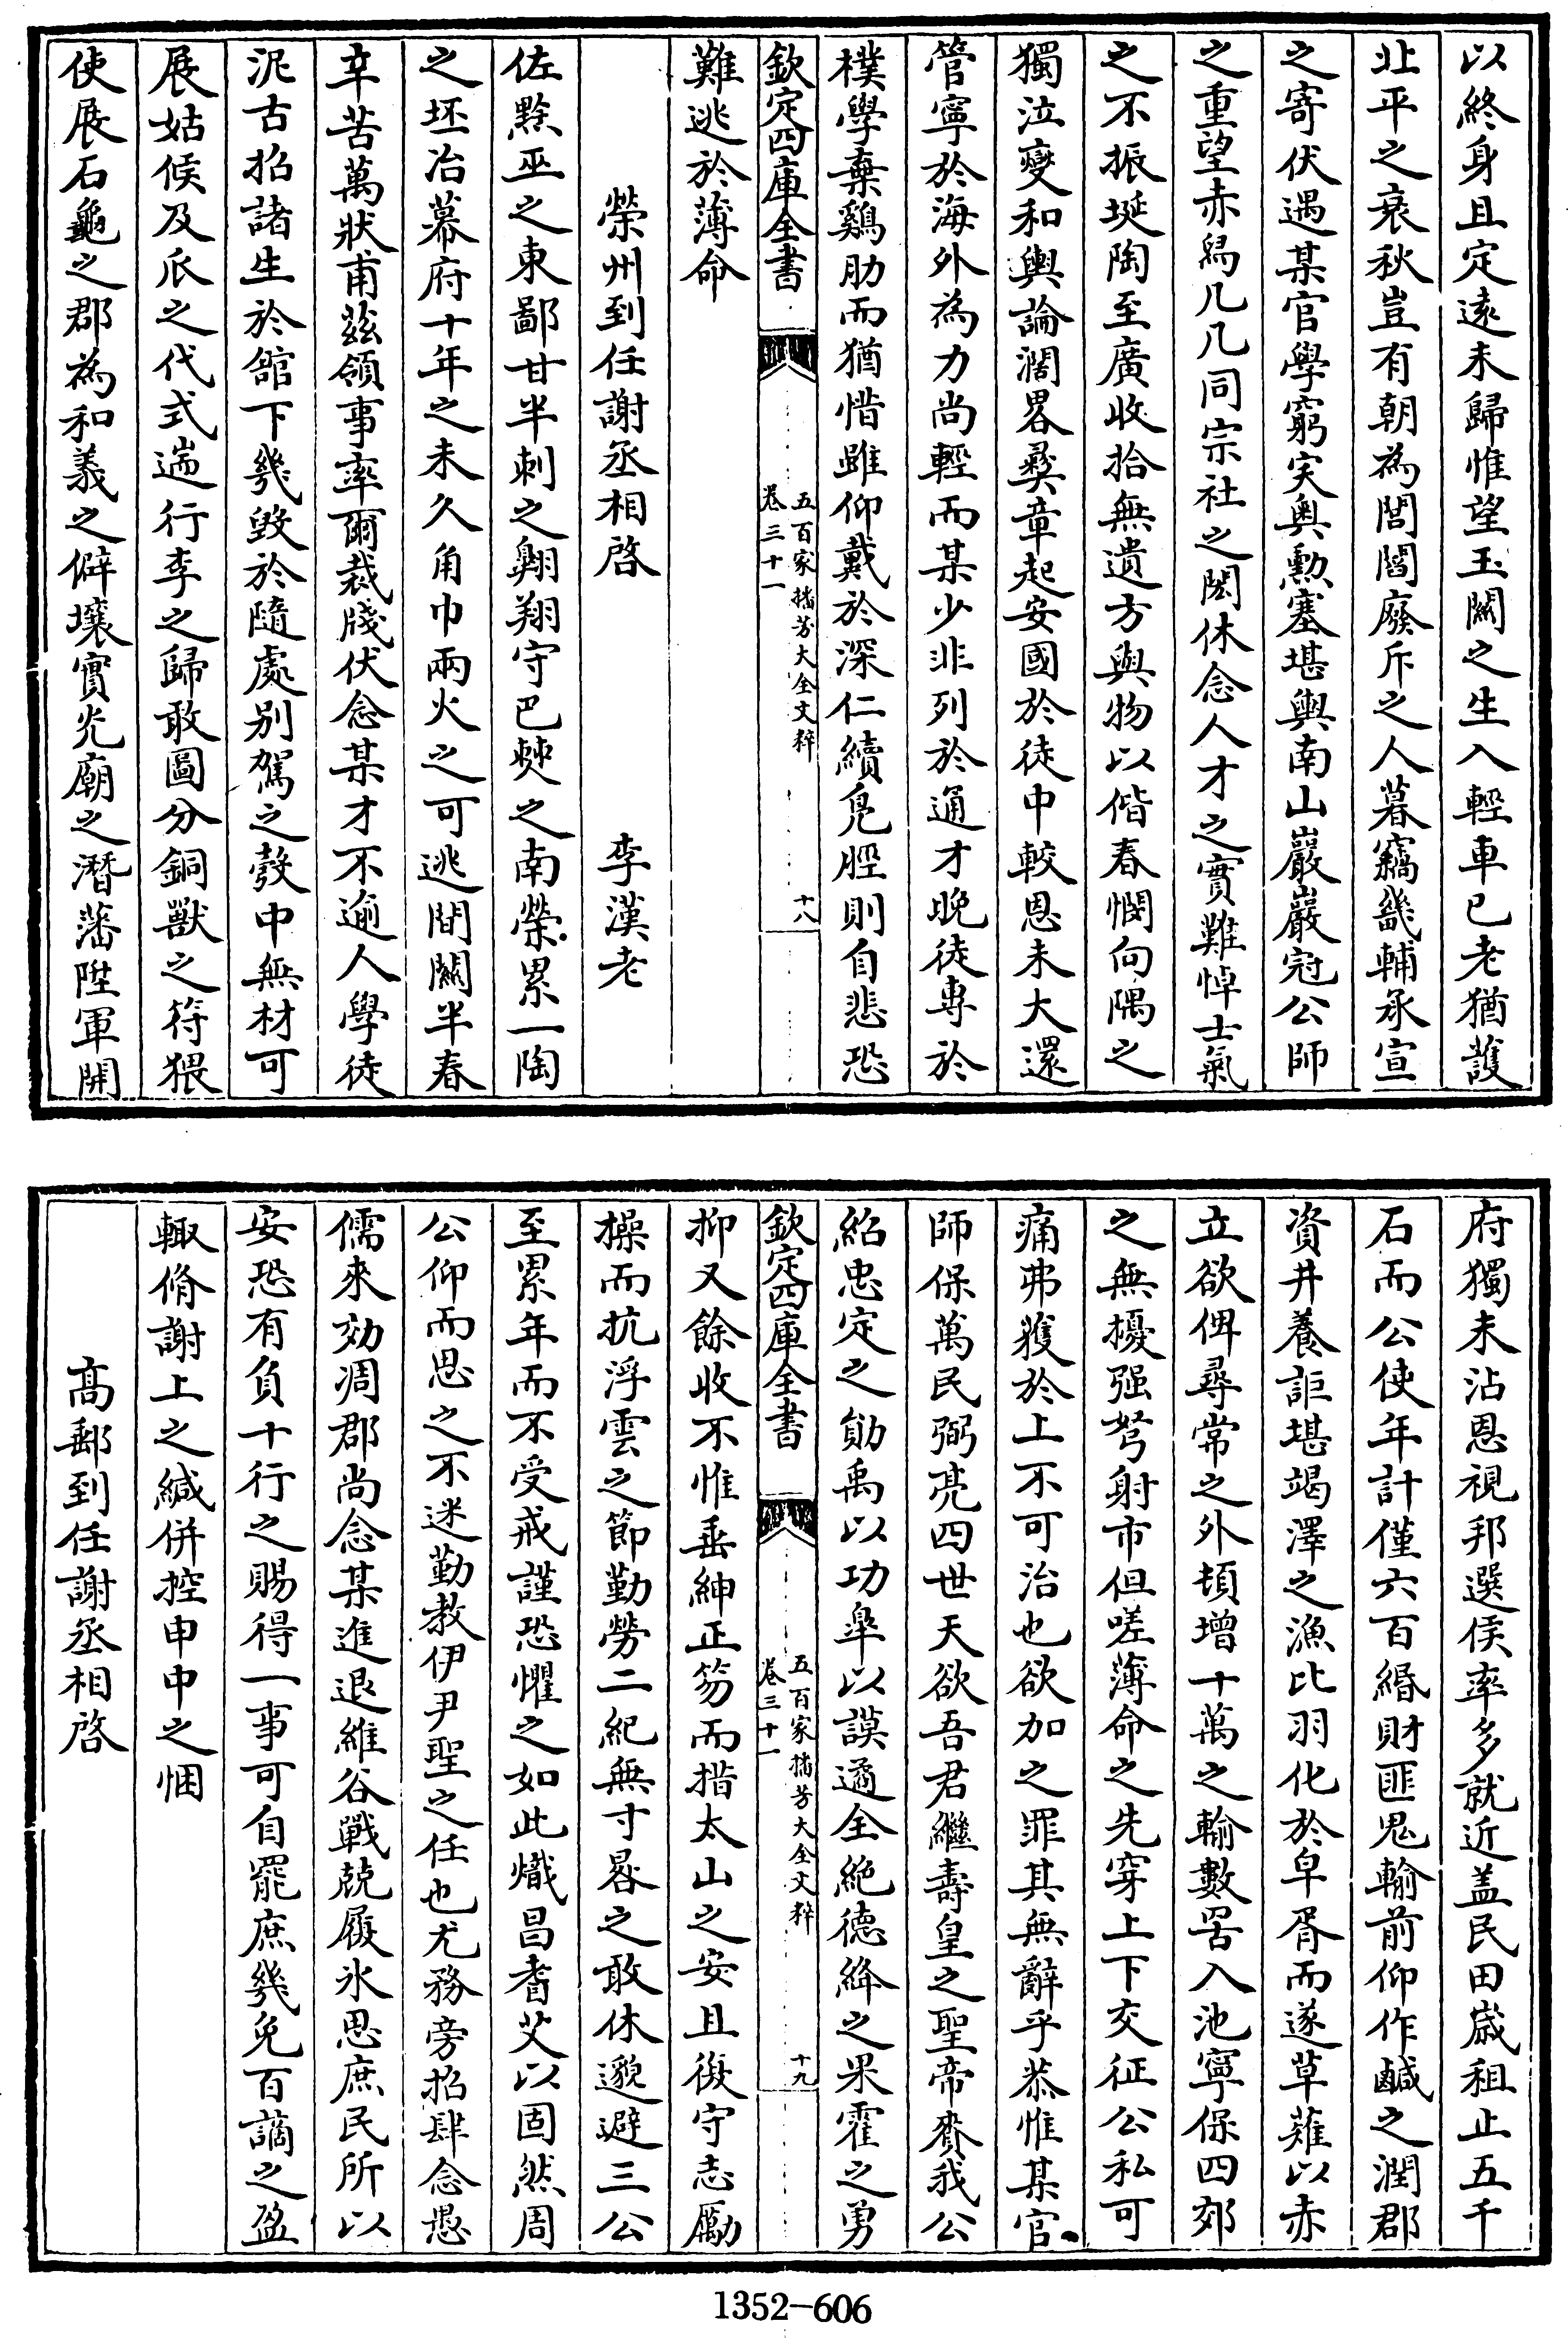 以終身且定遠未歸惟望玉闗之生入輕車已老猶護
北平之衰秋豈有朝為閭閻廢斥之人暮竊畿輔承宣
之寄伏遇某官學窮突奥勲塞堪輿南山巖巖冠公師
之重望赤舄几几同宗社之閎休念人才之實難悼士氣
之不振埏陶至廣收拾無遺方與物以偕春憫向隅之
獨泣變和輿論濶畧彛章起安國於徒中較恩未大還
管寧於海外為力尚輕而某少非列於通才晚徒專於
樸學棄鷄肋而猶惜雖仰戴於深仁續鳬脛則自悲恐
欽定四庫全書
五百家播芳大全文粹
卷三十一
十八
難逃於薄命
榮州到任謝丞相啓
李漢老
佐黔巫之東鄙甘半刺之翺翔守巴僰之南榮累一陶
之坯冶幕府十年之未久角巾兩火之可逃間闗半春
辛苦萬狀甫兹領事率爾裁牋伏念某才不逾人學徒
泥古招諸生於舘下幾毀於隨處別駕之彀中無材可
展姑候及瓜之代式遄行李之歸敢圖分銅獸之符猥
使展石龜之郡為和義之僻壤實光廟之潛藩陞軍開
府獨未沾恩視邦選侯率多就近盖民田嵗租止五千
石而公使年計僅六百緡財匪鬼輸前仰作鹹之潤郡
資井養詎堪竭澤之漁比羽化於皁胥而遂草薙以赤
立欲俾尋常之外頓增十萬之輸數罟入池寧保四郊
之無擾强弩射市但嗟薄命之先穿上下交征公私可
痛弗獲於上不可治也欲加之罪其無辭乎恭惟某官
師保萬民弼亮四世天欲吾君繼壽皇之聖帝賚我公
紹忠定之勛禹以功臯以謨遹全絶德絳之果霍之勇
欽定四庫全書
五百家播芳大全文粹
卷三十一
十九
抑又餘收不惟垂紳正笏而措太山之安且復守志勵
操而抗浮雲之節勤勞二紀無寸晷之敢休邈避三公
至累年而不受戒謹恐懼之如此熾昌耆艾以固然周
公仰而思之不迷勤教伊尹聖之任也尤務旁招肆念愚
儒來効凋郡尚念某進退維谷戰兢履氷思庶民所以
安恐有負十行之賜得一事可自罷庶幾免百謫之盈
輙脩謝上之緘併控申申之悃
髙郵到任謝丞相啓
1352-606